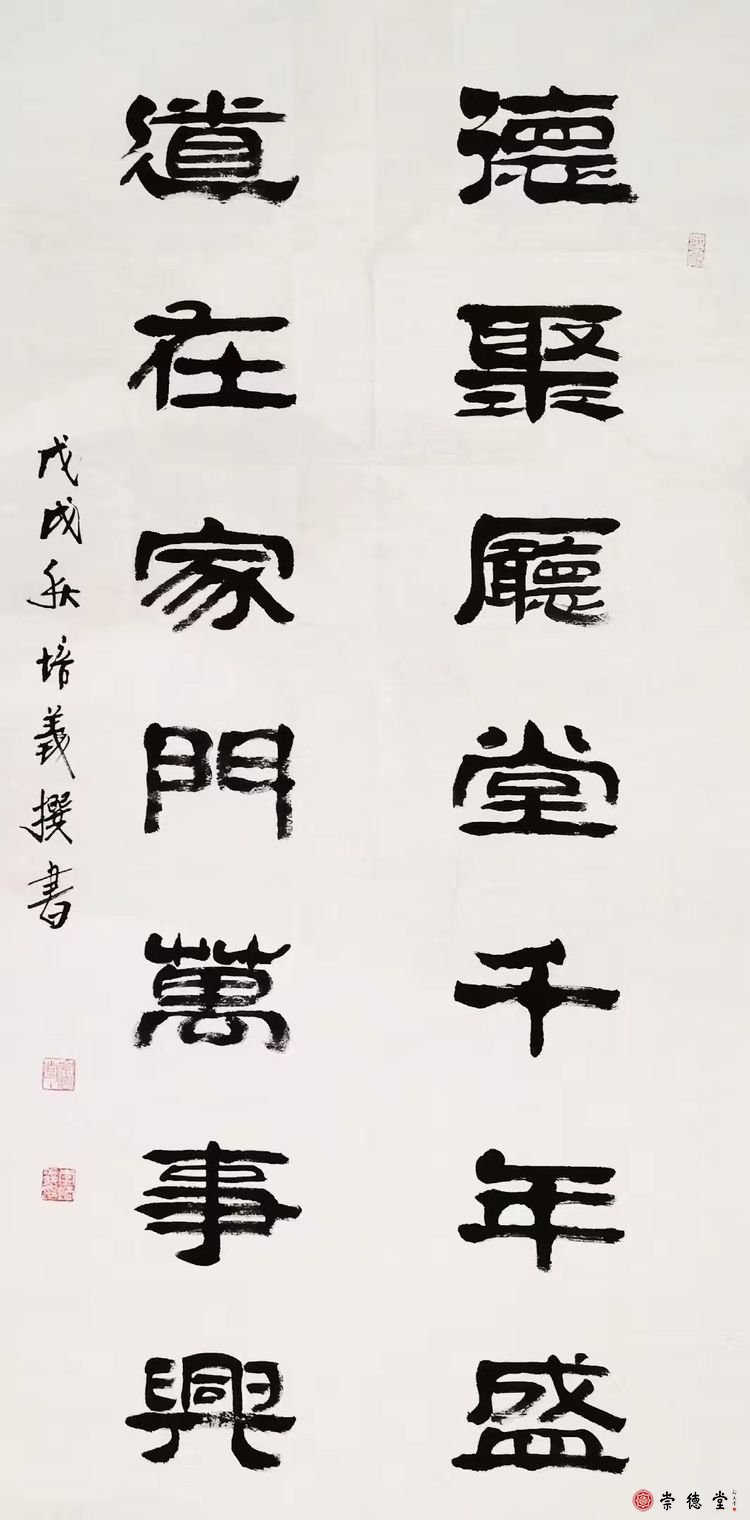 德聚廳堂千年盛
道在家門萬事興
戊戌秋培義撰書
崇德堂